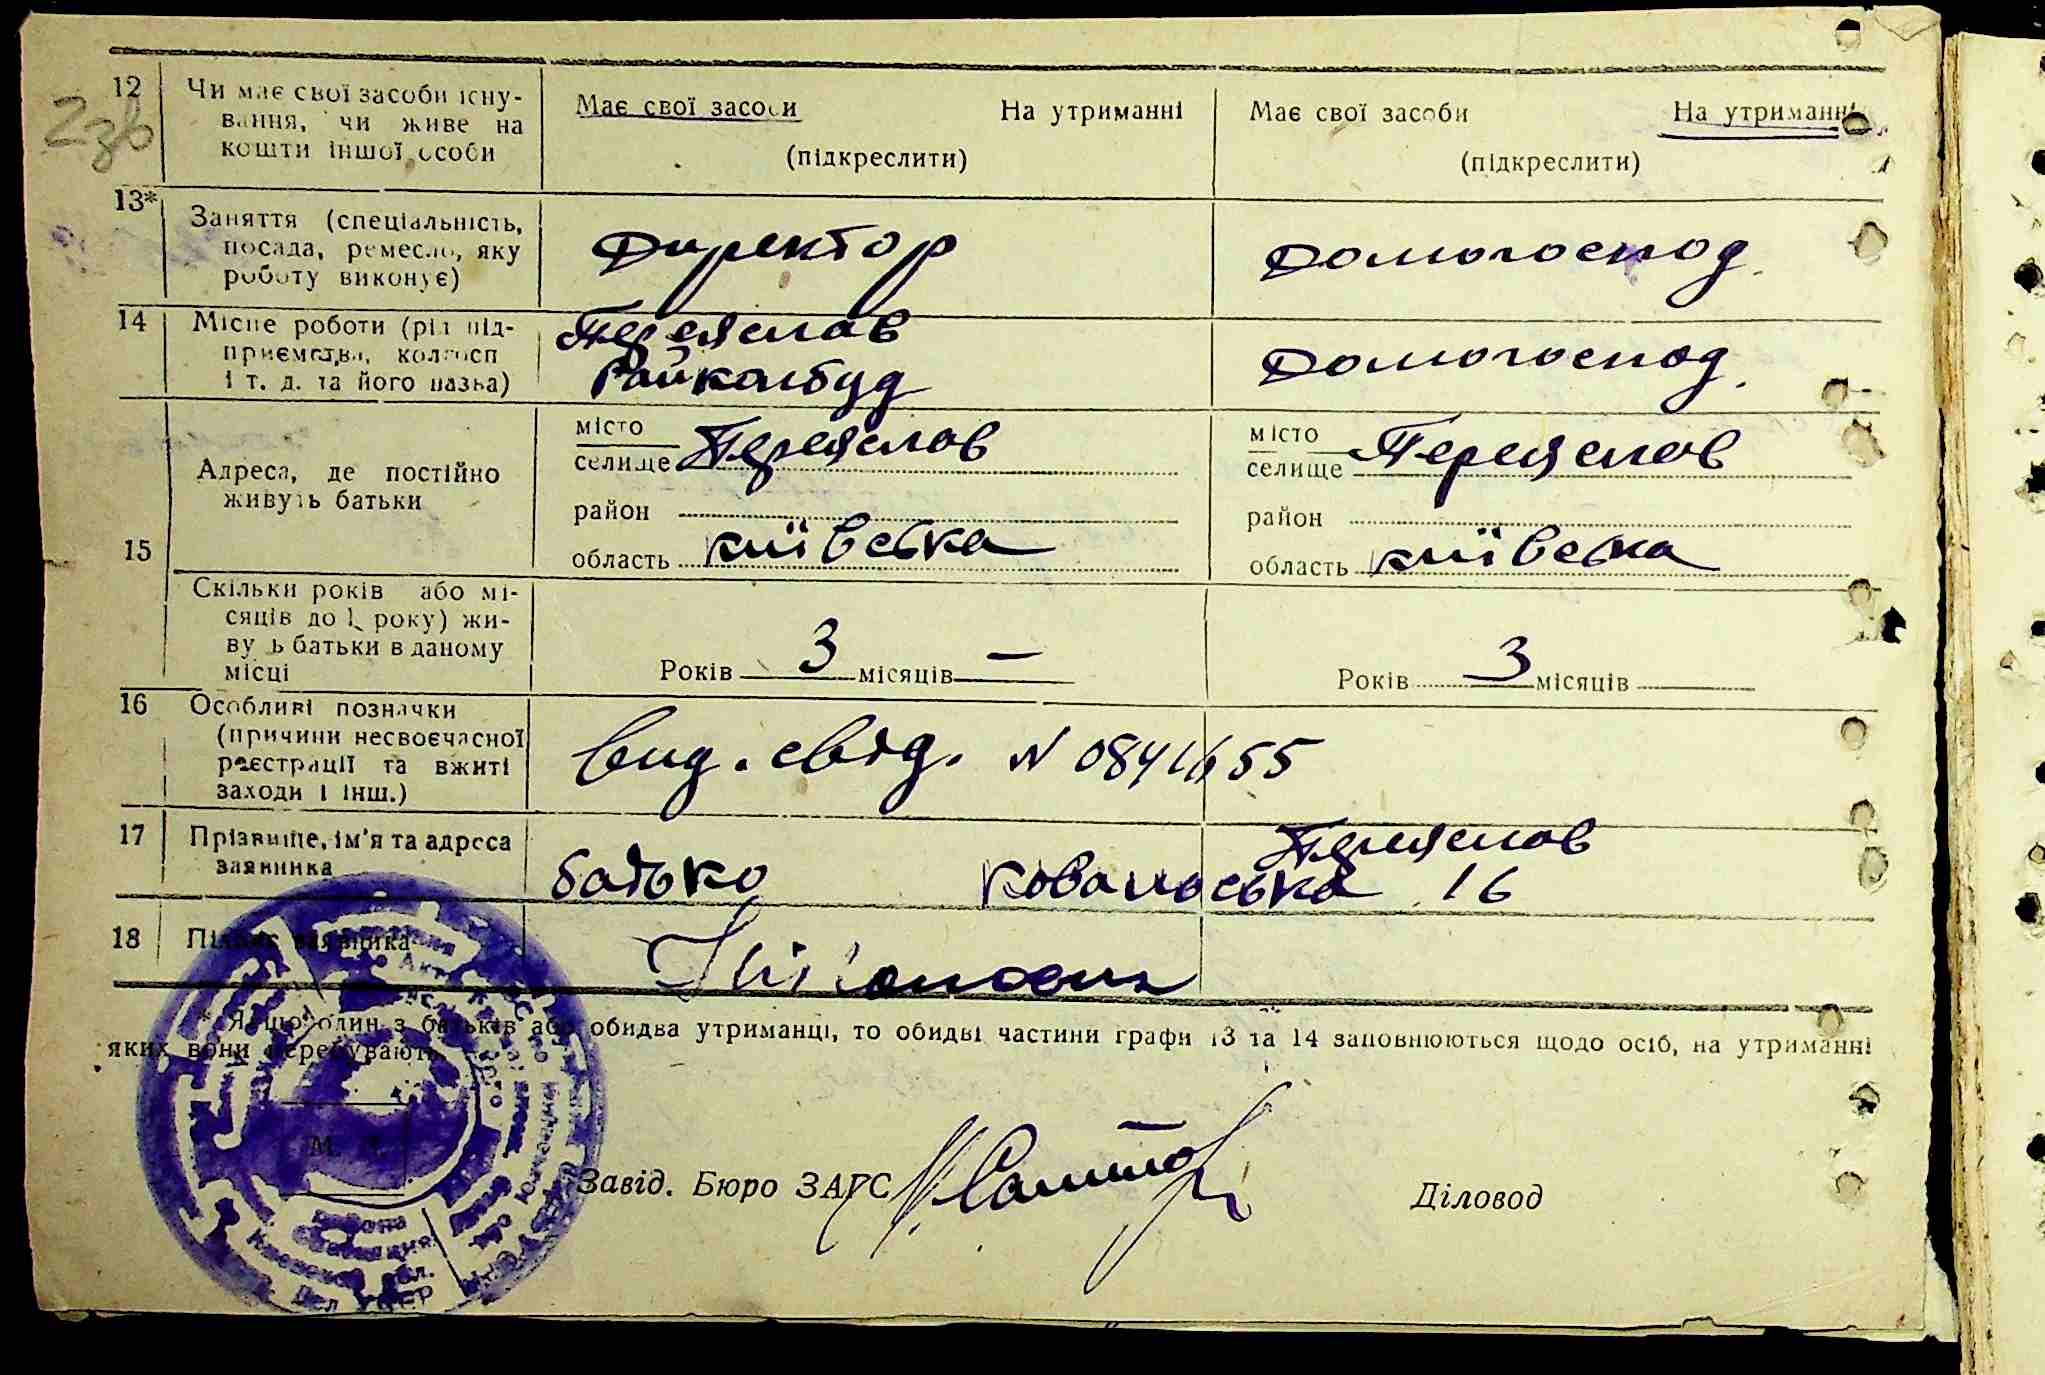 12 Чи має свої засоби існу-
вання, чи живе на
кошти іншої особи
Має свої засоби На утриманні
(підкреслити)
Має свої засоби На утриманні
(підкреслити)
13* Заняття (спеціальність,
посада, ремесло, яку
роботу виконує)
Директор
Домогоспод.
14 Місце роботи (рід під-
приємства, колгосп
і т. д. та його назва)
Переяслав
Райкомбуд
Домогоспод.
15 Адреса, де постійно
живуть батьки
місто
селище Переяслов
район
область київська
місто
селище Переяслов
район
область київська
Скільки років або мі-
сяців до 1 року) жи-
вуть батьки в даному
місці
Років 3 місяців —
Років 3 місяців
16 Особливі позначки
(причини несвоєчасної
реєстрації та вжиті
заходи і інш.)
вид. свід. N 0841655
17 Прізвище, ім'я та адреса
заявника
Переяслов
батько Ковальська 16
18 Підпис заявника
* Якщо один з батьків або обидва утриманці, то обидві частини графи 13 та 14 заповнюються щодо осіб, на утриманні
яких вони перебувають.
М. П.
Завід. Бюро ЗАГС
Діловод
района
Киевской обл.
УССР